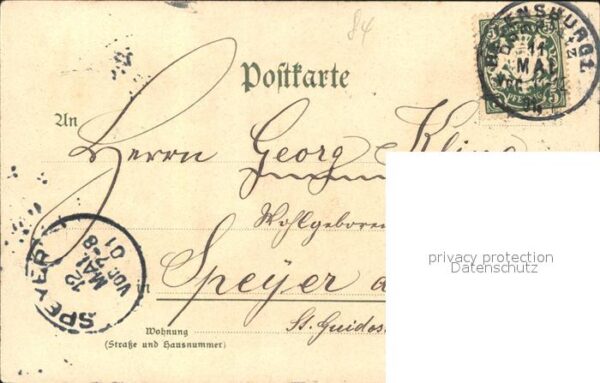 84
REGENSBURG 2
11
MAI
Postkarte
An
Herrn Georg
Wohlgeboren
in Speyer a
St. Guidos
Wohnung
(Straße und Hausnummer)
SPEYER
12
MAI
VOR 7-8
01
privacy protection
Datenschutz